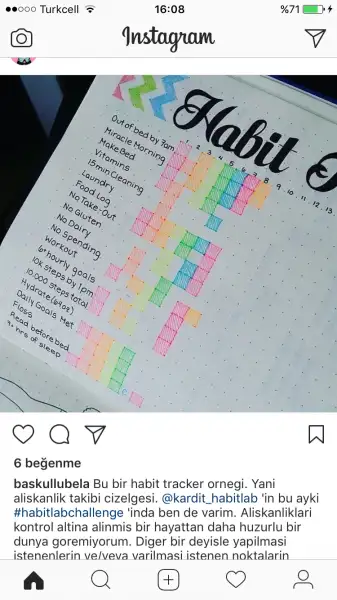 Turkcell 16:08 %71
Instagram
Habit
1 2 3 4 5 6 7 8 9 10 11 12 13
Out of bed by 7am
Miracle Morning
Make Bed
Vitamins
15min Cleaning
Laundry
Food Log
No Take-Out
No Gluten
No Dairy
No Spending
Workout
hourly goals
10k steps by 1pm
10,000 steps total
Hydrate (64oz)
Daily Goals Met
Floss
Read before bed
hrs of sleep
6 beğenme
baskullubela Bu bir habit tracker ornegi. Yani
aliskanlik takibi cizelgesi. @kardit_habitlab 'in bu ayki
#habitlabchallenge 'inda ben de varim. Aliskanliklari
kontrol altina alinmis bir hayattan daha huzurlu bir
dunya goremiyorum. Diger bir deyisle yapilmasi
istenenlerin ve/veya varilmasi istenen noktalarin